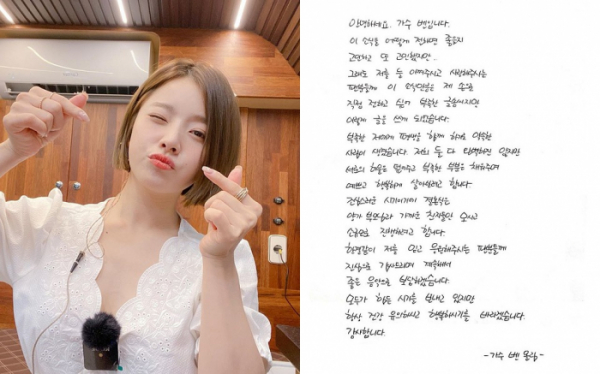 안녕하세요. 가수 벤입니다.
이 소식을 어떻게 전하면 좋을지
고민하고 또 고민했지만..
그래도 저를 늘 아껴주시고 사랑해주시는
팬분들께 이 소식만은 제 손으로
직접 전하고 싶어 부족한 글솜씨지만
이렇게 글을 쓰게 되었습니다.
부족한 저에게 평생을 함께 하기로 약속한
사람이 생겼습니다. 저희 둘 다 완벽하진 않지만
서로의 허물은 덮어주고 부족한 부분은 채워주며
예쁘고 행복하게 살아보려고 합니다.
조심스러운 시기이기에 결혼식은
양가 부모님과 가까운 친지들만 모시고
소규모로 진행하려고 합니다.
한결같이 저를 믿고 응원해주시는 팬분들께
진심으로 감사드리며 계속해서
좋은 음악으로 보답하겠습니다.
모두가 힘든 시기를 보내고 있지만
항상 건강 유의하시고 행복하시기를 바라겠습니다.
감사합니다.
-가수 벤 올림-